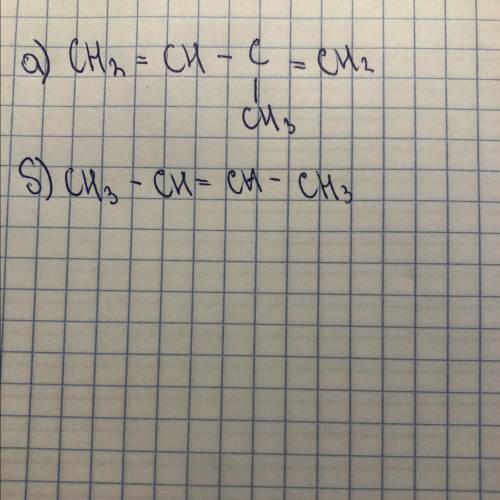 а) CH₂ = CH - C = CH₂
|
CH₃
б) CH₃ - CH = CH - CH₃